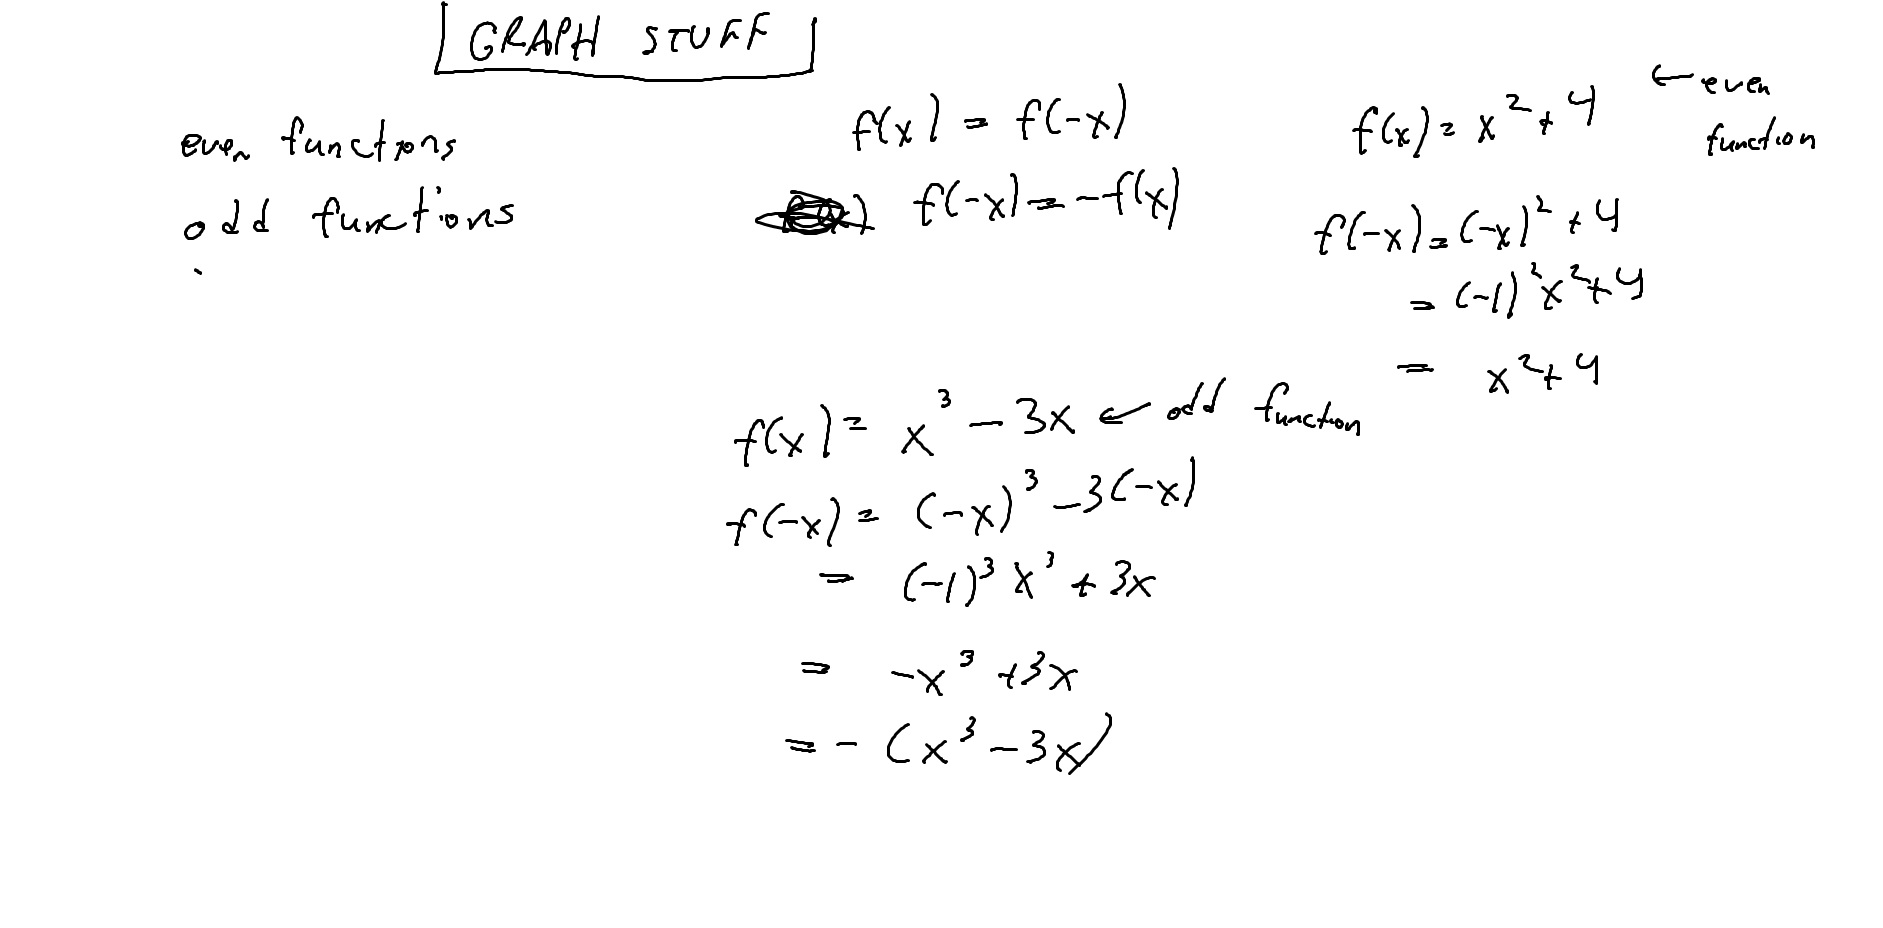 GRAPH STUFF
even functions
odd functions
f(x) = f(-x)
f(-x) = -f(x)
f(x) = x² + 4 ← even function
f(-x) = (-x)² + 4
= (-1)² x² + 4
= x² + 4
f(x) = x³ - 3x ← odd function
f(-x) = (-x)³ - 3(-x)
= (-1)³ x³ + 3x
= -x³ + 3x
= - (x³ - 3x)